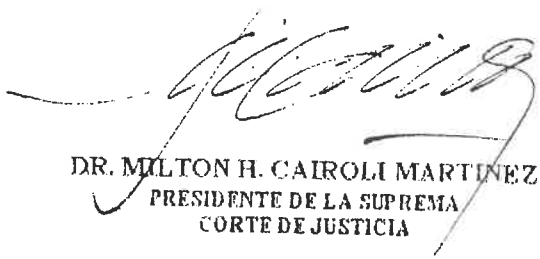 DR. MILTON H. CAIROLI MARTINEZ
PRESIDENTE DE LA SUPREMA
CORTE DE JUSTICIA